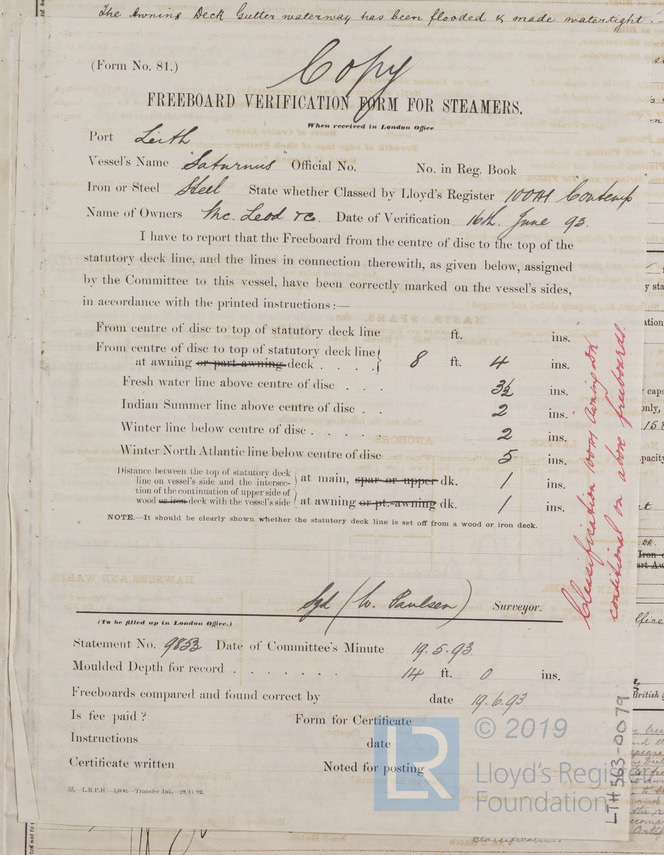 The Awning Deck Gutter waterway has been flooded & made watertight.
(Form No. 81.)
Copy
FREEBOARD VERIFICATION FORM FOR STEAMERS.
When received in London Office
Port Leith
Vessel's Name "Saturnus" Official No. No. in Reg. Book
Iron or Steel Steel State whether Classed by Lloyd's Register 100A1 Contemp
Name of Owners Mc. Leod & Co. Date of Verification 16th. June 93.
I have to report that the Freeboard from the centre of disc to the top of the
statutory deck line, and the lines in connection therewith, as given below, assigned
by the Committee to this vessel, have been correctly marked on the vessel's sides,
in accordance with the printed instructions:—
From centre of disc to top of statutory deck line ft. ins.
From centre of disc to top of statutory deck line
at awning or part awning deck . . . . 8 ft. 4 ins.
Fresh water line above centre of disc . . . 3½ ins.
Indian Summer line above centre of disc . . 2 ins.
Winter line below centre of disc . . . . 2 ins.
Winter North Atlantic line below centre of disc 5 ins.
Distance between the top of statutory deck
line on vessel's side and the intersec-
tion of the continuation of upper side of
wood or iron deck with the vessel's side
at main, spar or upper dk. 1 ins.
at awning or pt.-awning dk. 1 ins.
NOTE.—It should be clearly shown whether the statutory deck line is set off from a wood or iron deck.
Classification 100A1 Awning Dk
conditional on above freeboards.
Sgd (W. Paulsen) Surveyor.
(To be filled up in London Office.)
Statement No. 9853 Date of Committee's Minute 19.5.93
Moulded Depth for record . . . . . . . 14 ft. 0 ins.
Freeboards compared and found correct by date 19.6.93
Is fee paid? Form for Certificate
Instructions date
Certificate written Noted for posting
55.—L.R.P.H.—3,000.—Transfer Ink.—28/11/92.
LTH563-0079
© 2019
LR
Lloyd's Register
Foundation